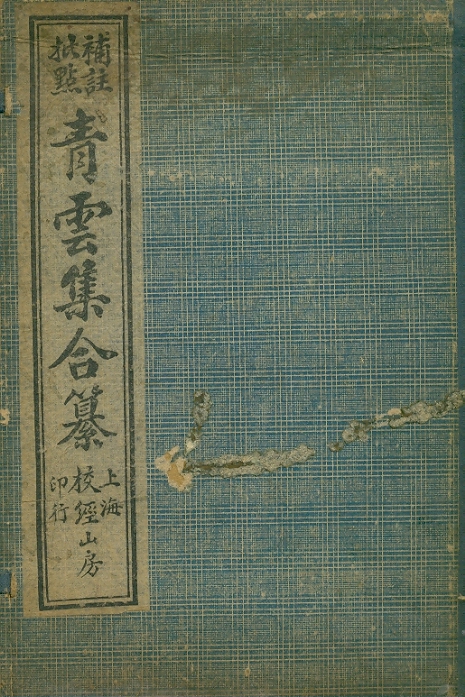 補註
批點
青雲集合纂
上海
校經山房
印行